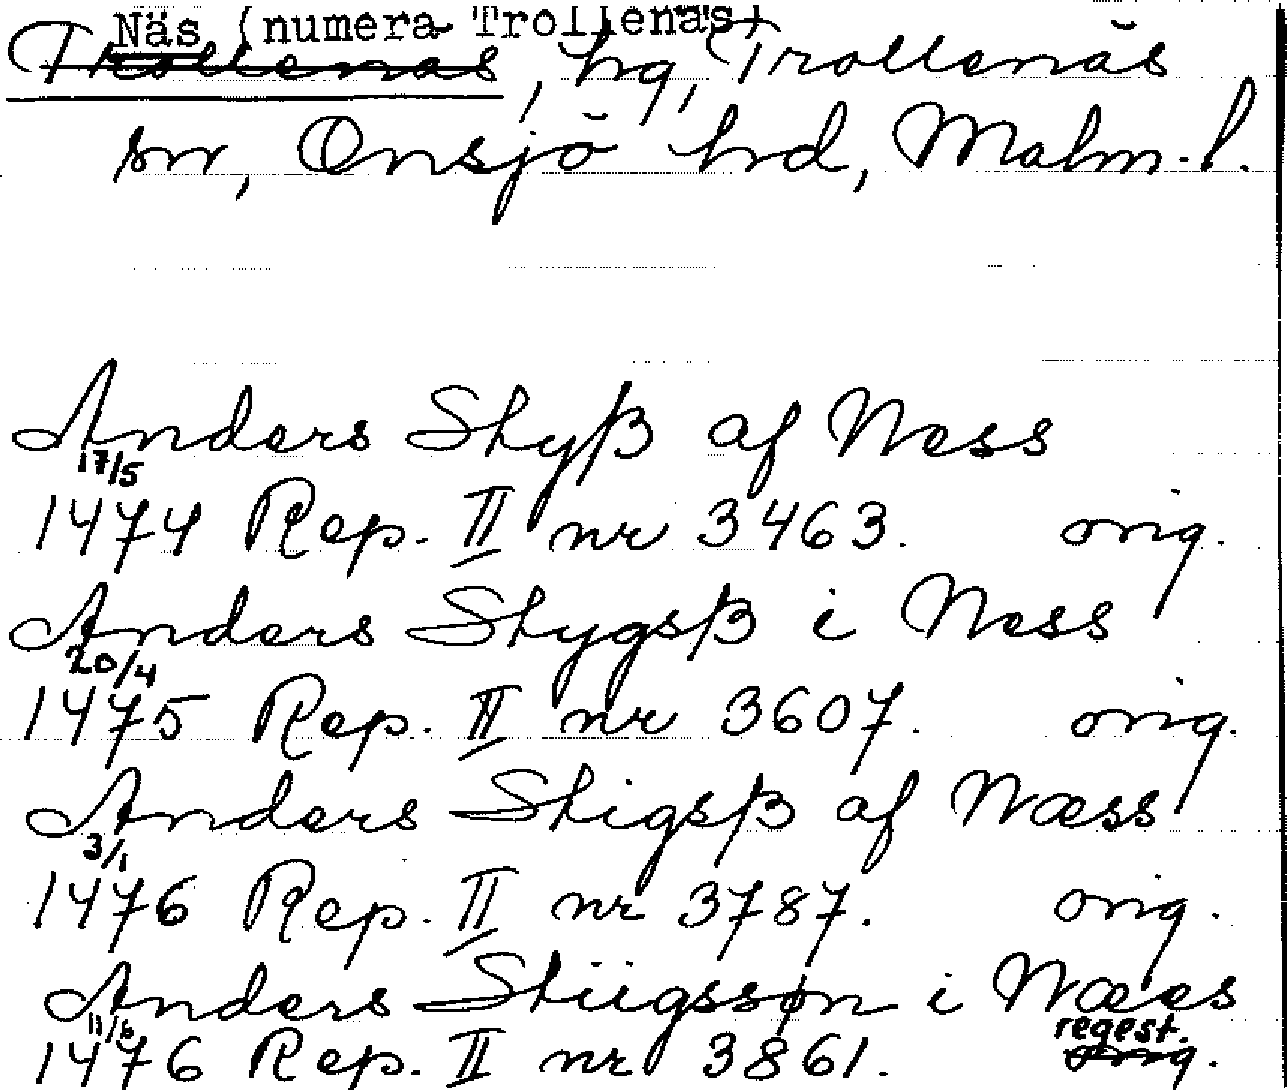 Näs (numera Trollenäs)
Trollenäs, hg, Trollenäs
sn, Onsjö hrd, Malm.l.
Anders Styß af Ness
17/5
1474 Rep. II nr 3463. orig.
Anders Stygsß i Ness
20/4
1475 Rep. II nr 3607. orig.
Anders Stigsß af Næss
3/1
1476 Rep. II nr 3787. orig.
Anders Stiigssøn i Næes
11/6 regest.
1476 Rep. II nr 3861. orig.